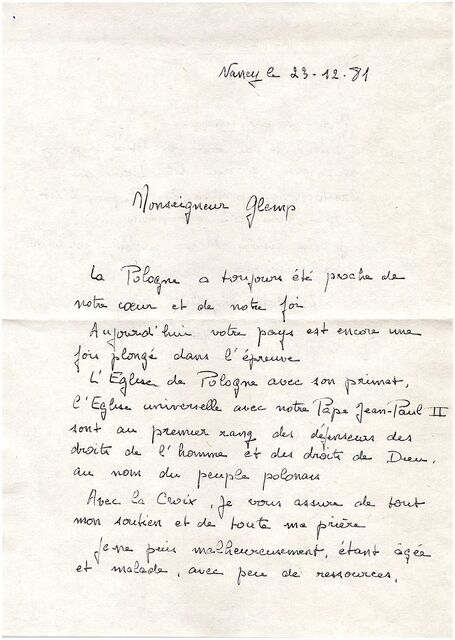 Nancy le 23-12-81
Monseigneur Glemp
La Pologne a toujours été proche de
notre cœur et de notre foi
Aujourd'hui votre pays est encore une
fois plongé dans l'épreuve
L'Eglise de Pologne avec son primat,
l'Eglise universelle avec notre Pape Jean-Paul II
sont au premier rang des défenseurs des
droits de l'homme et des droits de Dieu,
au nom du peuple polonais
Avec la Croix, je vous assure de tout
mon soutien et de toute ma prière
Je ne puis malheureusement, étant âgée
et malade, avec peu de ressources,